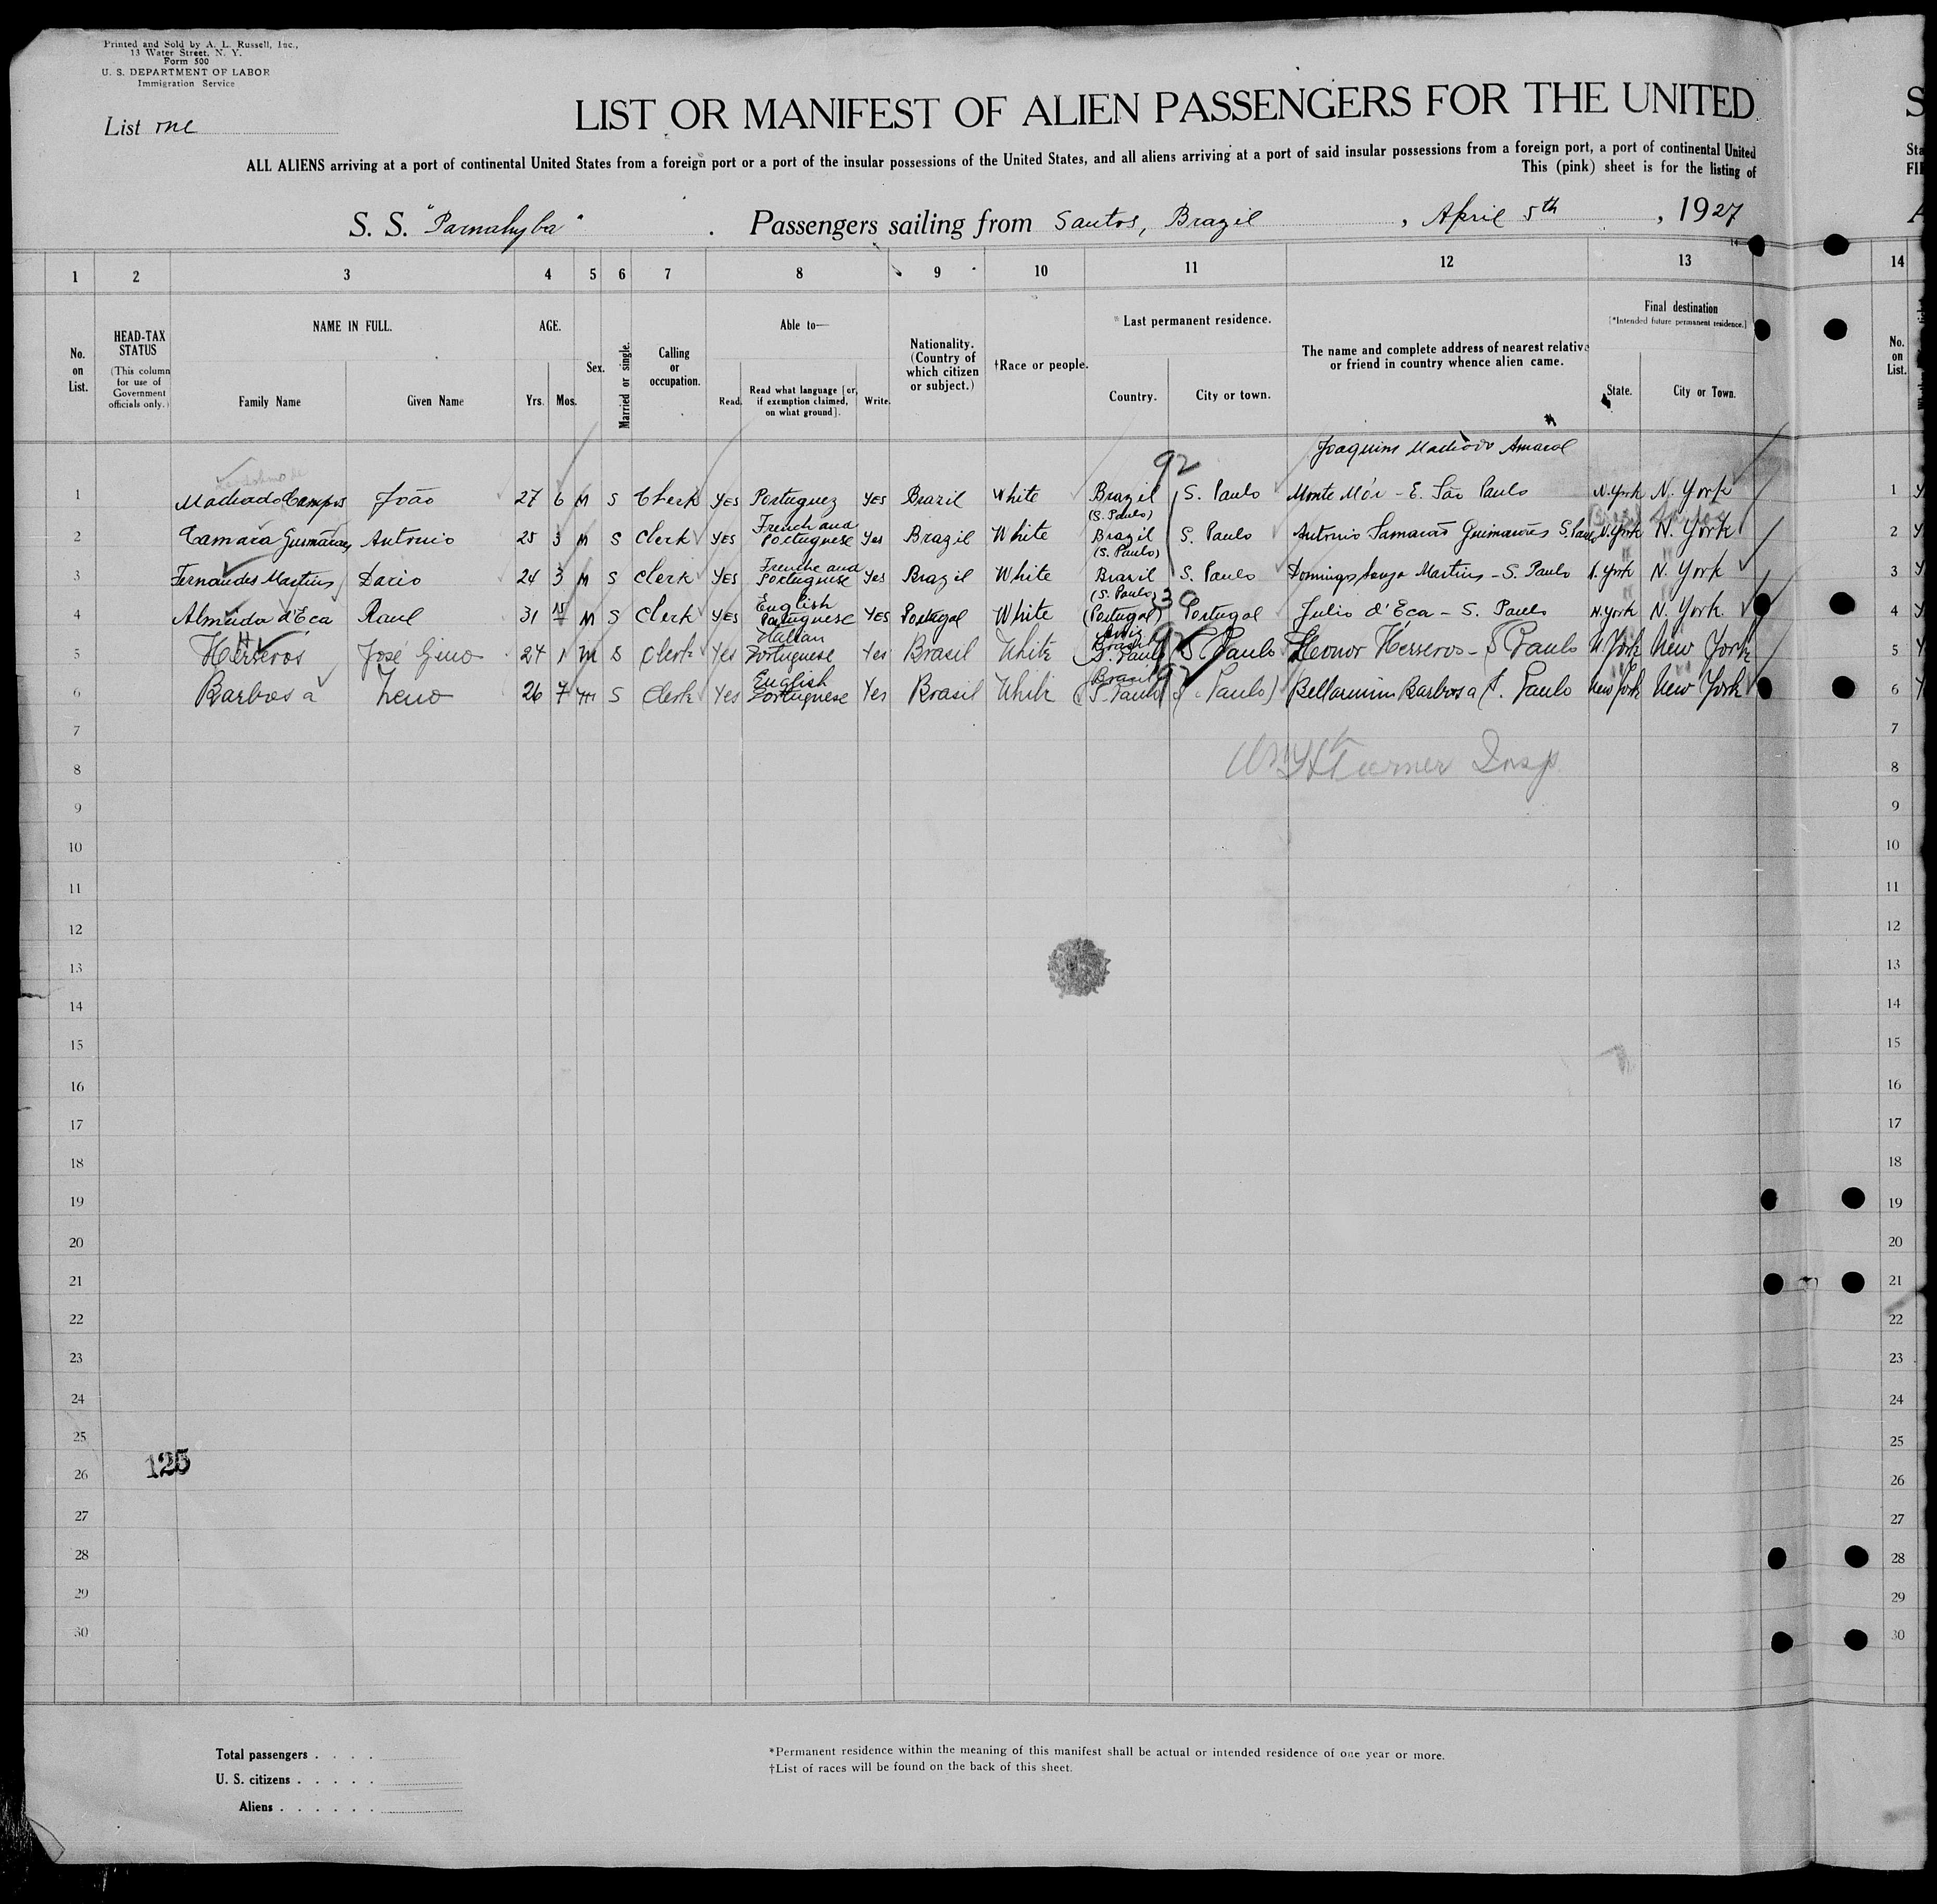 Printed and Sold by A. L. Russell, Inc.,
13 Water Street, N. Y.
Form 500
U. S. DEPARTMENT OF LABOR
Immigration Service
List one
LIST OR MANIFEST OF ALIEN PASSENGERS FOR THE UNITED
ALL ALIENS arriving at a port of continental United States from a foreign port or a port of the insular possessions of the United States, and all aliens arriving at a port of said insular possessions from a foreign port, a port of continental United
This (pink) sheet is for the listing of
S. S. "Parnahyba" . Passengers sailing from Santos, Brazil , April 5th , 1927
1 2 3 4 5 6 7 8 9 10 11 12 13 14
No. on List.
HEAD-TAX STATUS
(This column for use of Government officials only.)
NAME IN FULL.
Family Name Given Name
AGE.
Yrs. Mos.
Sex.
Married or single.
Calling or occupation.
Able to—
Read. Read what language [or, if exemption claimed, on what ground]. Write.
Nationality. (Country of which citizen or subject.)
†Race or people.
*Last permanent residence.
Country. City or town.
The name and complete address of nearest relative or friend in country whence alien came.
Final destination
[*Intended future permanent residence.]
State. City or Town.
No. on List.
92
Joaquim Machado Amaral
1 Machado Campos João 27 6 M S Clerk Yes Portuguez Yes Brazil White Brazil (S. Paulo) S. Paulo Monte Mór - E. São Paulo N. York N. York 1
2 Camara Guimarães Antonio 25 3 M S Clerk Yes French and Portuguese Yes Brazil White Brazil (S. Paulo) S. Paulo Antonio Guimarães S. Paulo N. York N. York 2
3 Fernandes Martins Dario 24 3 M S Clerk Yes Frenche and Portuguese Yes Brazil White Brazil (S. Paulo) S. Paulo Domingos Martins - S. Paulo N. York N. York 3
30
4 Almeida d'Eca Raul 31 M S Clerk Yes English Portuguese Yes Portugal White (Portugal) Portugal Julio d'Eca - S. Paulo N. York N. York 4
92
5 Herreros José Gino 24 1 M S Clerk Yes Italian Portuguese Yes Brasil White Brasil S. Paulo S. Paulo Leonor Herreros - S Paulo N York New York 5
92
6 Barbosa Zeno 26 7 M S Clerk Yes English Portuguese Yes Brasil White Brasil (S. Paulo S. Paulo) Bellarmim Barbosa S. Paulo New York New York 6
7 7
Turner Insp.
8 8
9 9
10 10
11 11
12 12
13 13
14 14
15 15
16 16
17 17
18 18
19 19
20 20
21 21
22 22
23 23
24 24
25 25
125
26 26
27 27
28 28
29 29
30 30
Total passengers . . . .
U. S. citizens . . . . .
Aliens . . . . . .
*Permanent residence within the meaning of this manifest shall be actual or intended residence of one year or more.
†List of races will be found on the back of this sheet.